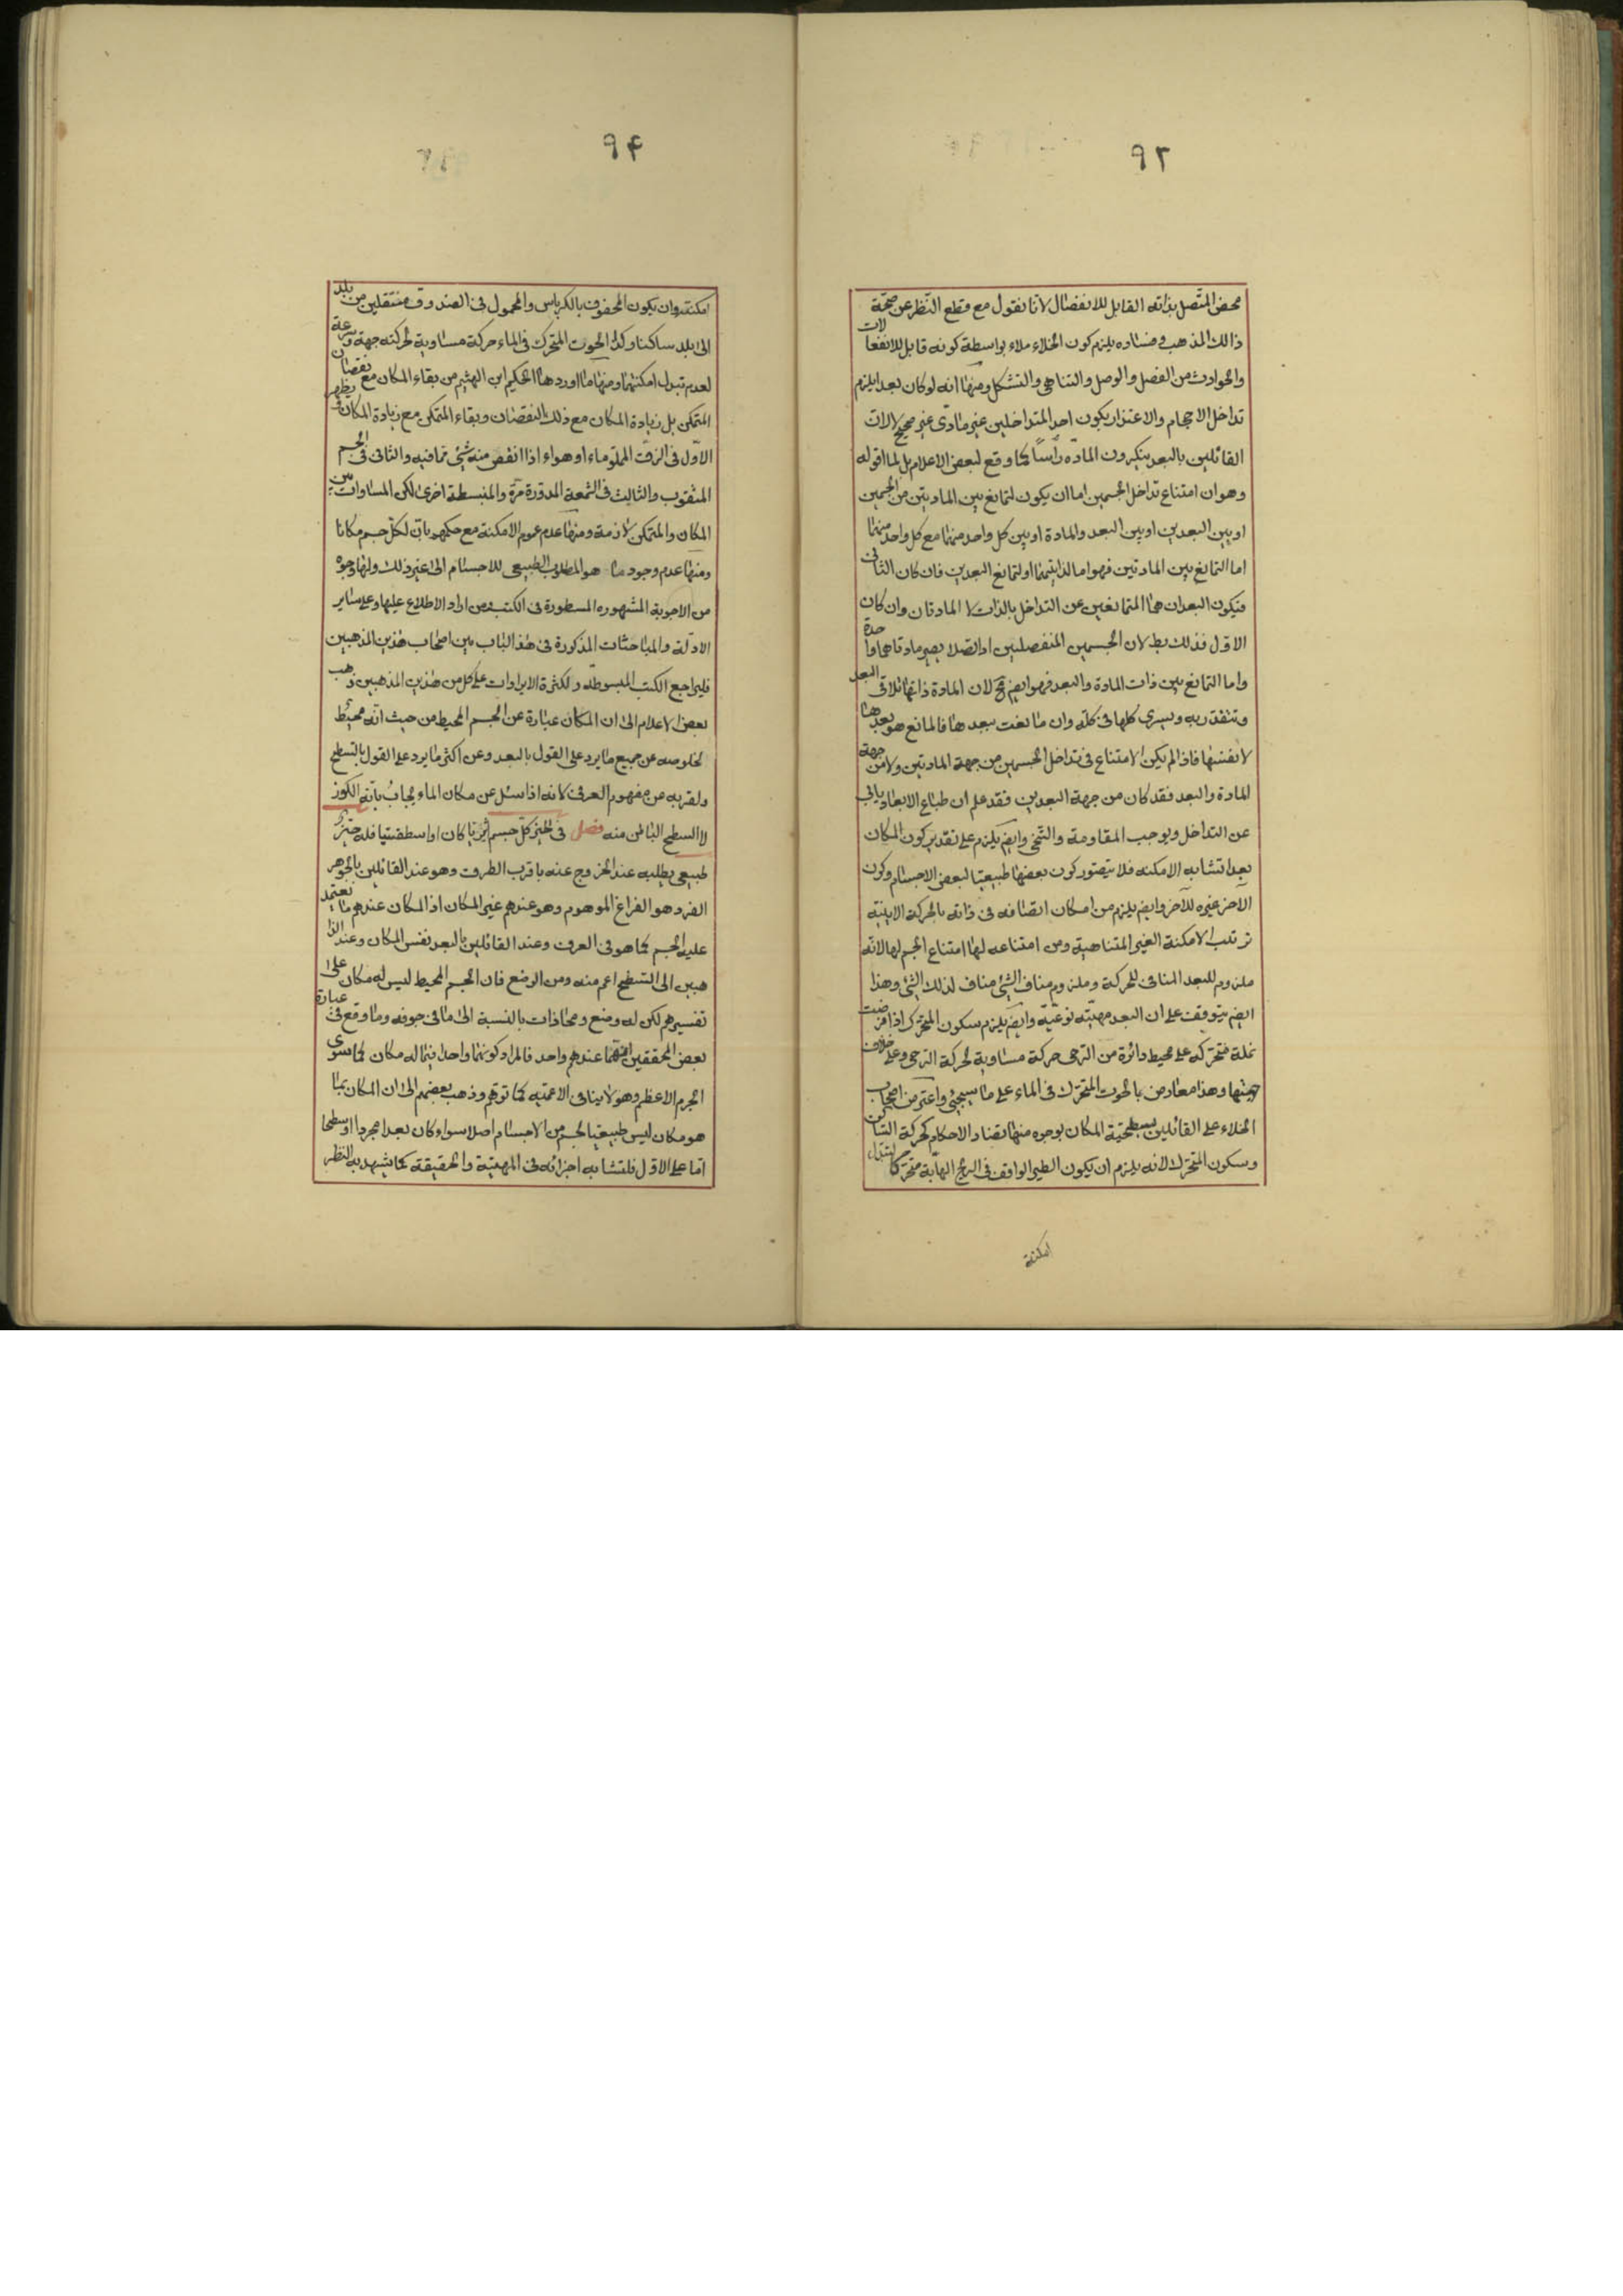 ٩٣
محض المتّصل بذاته القابل للانفصال لانّا نقول مع قطع النّظر عن صحّة
ذالك المذهب وفساده يلزم كون الخلاء ملاء بواسطة كونه قابل للانفعالات
والحوادث من الفصل والوصل والتناهى والتشكل ومنها انه لو كان بعدا يلزم
تداخل الاجسام والاعتذار بكون احد المتداخلين غير مادّى غير صحيح لا لان
القائلين بالبعد ينكرون المادّه رأسًا كما وقع لبعض الاعلام بل لما اقوله
وهو ان امتناع تداخل الجسمين اما ان يكون لتمانع بين المادتين من الجسمين
او بين البعدين او بين البعد والمادة او بين كل واحد منهما مع كل واحد منهما
اما التمانع بين المادتين فهو اما لذاتيهما او لتمانع البعدين فان كان الثانى
فيكون البعدان هما المتمانعين عن التداخل بالذات لا المادتان وان كان
الاوّل فذلك بط لان الجسمين المنفصلين اذا اتصلا يصير مادتاهما واحدة
واما التمانع بين ذات المادة والبعد فهو ايضا مح لان المادة ذاتها تلاقى البعد
وتتقدّر به ويسرى كلها فى كلّه وان مانعت ببعدها فالمانع هو بعدها
لا نفسها فاذا لم يكن الامتناع فى تداخل الجسمين من جهة المادتين ولا من جهة
المادة والبعد فقد كان من جهة البعدين فقد علم ان طباع الابعاد يابى
عن التداخل ويوجب المقاومة والتنحى وايضا يلزم على تقدير كون المكان
بعدا تشابه الامكنه فلا يتصوّر كون بعضها طبيعيّا لبعض الاجسام وكون
الآخر غيره للآخر وايضا يلزم من امكان اتصافه فى ذاته بالحركة الاينيّة
ترتب الامكنة الغير المتناهية ومن امتناعه لها امتناع الجسم لها لانّه
ملزوم للبعد المنافى للحركة وملزوم مناف الشئ مناف لذلك الشئ وهذا
ايضا يتوقف على ان البعد مهيّته نوعيّة وايضا يلزم سكون المتحرّك اذا فرضت
نملة متحرّكه على محيط دائرة من الرّحى حركة مساوية لحركة الرّحى وعلى خلاف
جهتها وهذا معارض بالحوت المتحرّك فى الماء على ما سيجئ واعترض اصحاب
الخلاء على القائلين بسطحيّة المكان بوجوه منها تضاد الاحكام كحركة الساكن
وسكون المتحرّك لانه يلزم ان يكون الطير الواقف فى الريح الهابّة متحرّكا لتبدّل
امكنته
٩۴
امكنته وان يكون المحفوف بالكرباس والمحمول فى الصندوق منتقلين من بلد
الى بلد ساكنا وكذا الحوت المتحرّك فى الماء حركة مساوية لحركته جهة وسرعة
لعدم تبدل امكنتهما ومنها ما اوردها الحكيم ابن الهثيم من بقاء المكان مع نقصان
المتمكن بل زيادة المكان مع ذلك النقصان وبقاء المتمكن مع زيادة المكان ويظهر
الاوّل فى الزقّ المملو ماء او هواء اذا انقص منه شئ ممّا فيه والثانى فى الجسم
المثقوب والثالث فى الشمعة المدوّرة مرّة والمنبسطة اخرى لكن المساوات بين
المكان والمتمكن لازمة ومنها عدم عموم الامكنة مع حكمهم بانّ لكلّ جسم مكانا
ومنها عدم وجود ما هو المطلوب الطبيعى للاجسام الى غير ذلك ولها وجوه
من الاجوبة المشهوره المسطورة فى الكتب فمن اراد الاطلاع عليها وعلى ساير
الادلّة والمباحثات المذكورة فى هذا الباب بين اصحاب هذين المذهبين
فليراجع الكتب المبسوطه ولكثرة الايرادات على كل من هذين المذهبين ذهب
بعض الاعلام الى ان المكان عبارة عن الجسم المحيط من حيث انّه محيط
لخلوصه عن جميع ما يرد على القول بالبعد وعن اكثر ما يرد على القول بالسّطح
ولقربه من مفهوم العرفى لانه اذا سئل عن مكان الماء يجاب بانّه الكوز
لا السطح الباطن منه فصل فى الحيّز كلّ جسم اثيريّا كان او اسطقسيّا فله حيّز
طبيعى يطلبه عند الخروج عنه باقرب الطرق وهو عند القائلين بالجوهر
الفرد هو الفراغ الموهوم وهو عندهم غير المكان اذ المكان عندهم ما يعتمد
عليه الجسم كما هو فى العرف وعند القائلين بالبعد نفس المكان وعند الذا
هبين الى السّطح اعم منه ومن الوضع فان الجسم المحيط ليس له مكان على
تفسيرهم لكن له وضع ومحاذات بالنسبة الى ما فى جوفه وما وقع فى عبارة
بعض المحققين انهما عندهم واحد فالمراد كونهما واحدا فيما له مكان كما سوى
الجرم الاعظم وهو لا ينافى الاعميّه كما توهّم وذهب بعضهم الى ان المكان بما
هو مكان ليس طبيعيّا لجسم من الاجسام اصلا سواء كان بعدا مجردا او سطحا
امّا على الاوّل فلتشابه اجزائه فى المهيّة والحقيقة كما يشهد به النظر